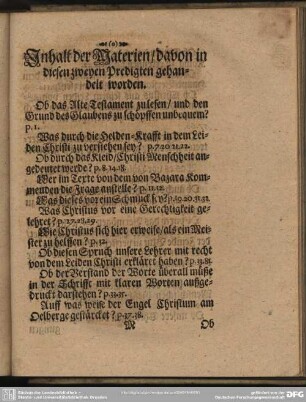 (o)
Inhalt der Materien/ davon in
diesen zweyen Predigten gehan-
delt worden.
Ob das Alte Testament zulesen/ und den
Grund des Glaubens zu schöpffen unbequem?
p. 1.
Was durch die Helden-Krafft in dem Lei-
den Christi zu verstehen sey? p. 7. 20. 21. 22.
Ob durch das Kleid/ Christi Menschheit an-
gedeutet werde? p. 8. 14. 18.
Wer im Texte von dem von Bazara Kom-
menden die Frage anstelle? p. 11. 12.
Was dieses vor ein Schmuck sey? p. 19. 20. 31. 32.
Was Christus vor eine Gerechtigkeit ge-
lehret? p. 27. 28. 29.
Wie Christus sich hier erweise/ als ein Mei-
ster zu helffen? p. 32.
Ob diesen Spruch unsere Lehrer mit recht
von dem Leiden Christi erkläret haben? p.
Ob der Verstand der Worte überall müsse
in der Schrifft mit klaren Worten außge-
druckt darstehen? p.
Auff was weise der Engel Christum am
Oelberge gestärcket? p. 37. 38.
M Ob